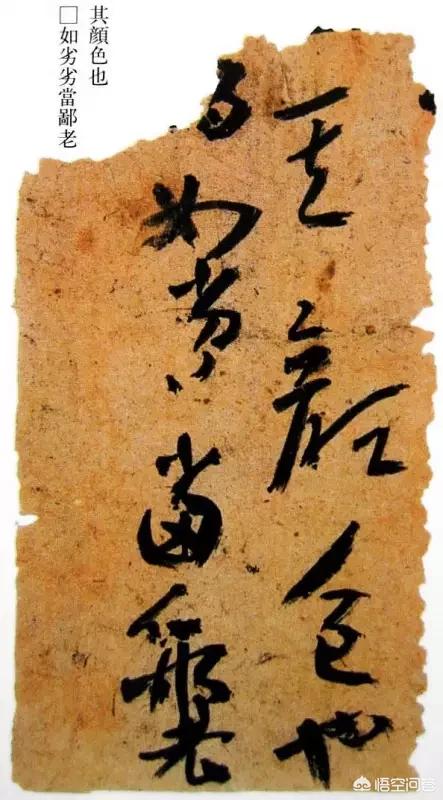 其顔色也
□如劣劣當鄙老
其顔色也
如劣劣當鄙老
悟空问答